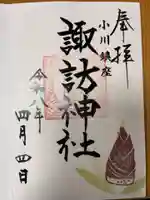 奉拝
小川鎮座
諏訪神社
令和八年
四月四日